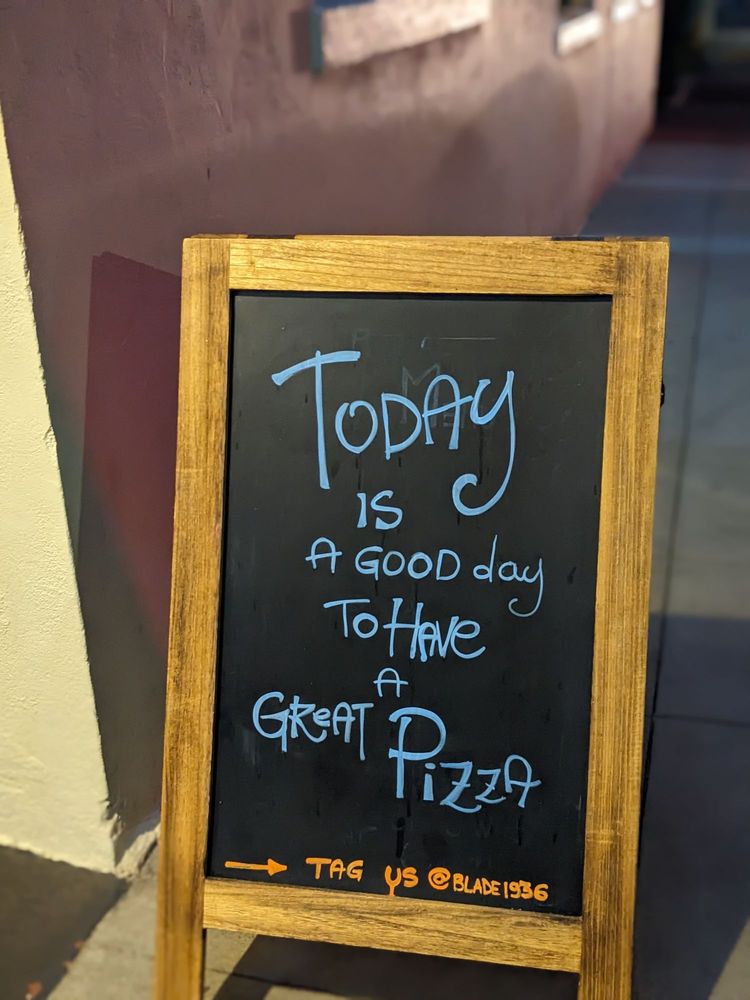 TODAY
IS
A GOOD day
To HAVe
A
GReAT PiZZA
→ TAG US @BLADE1936